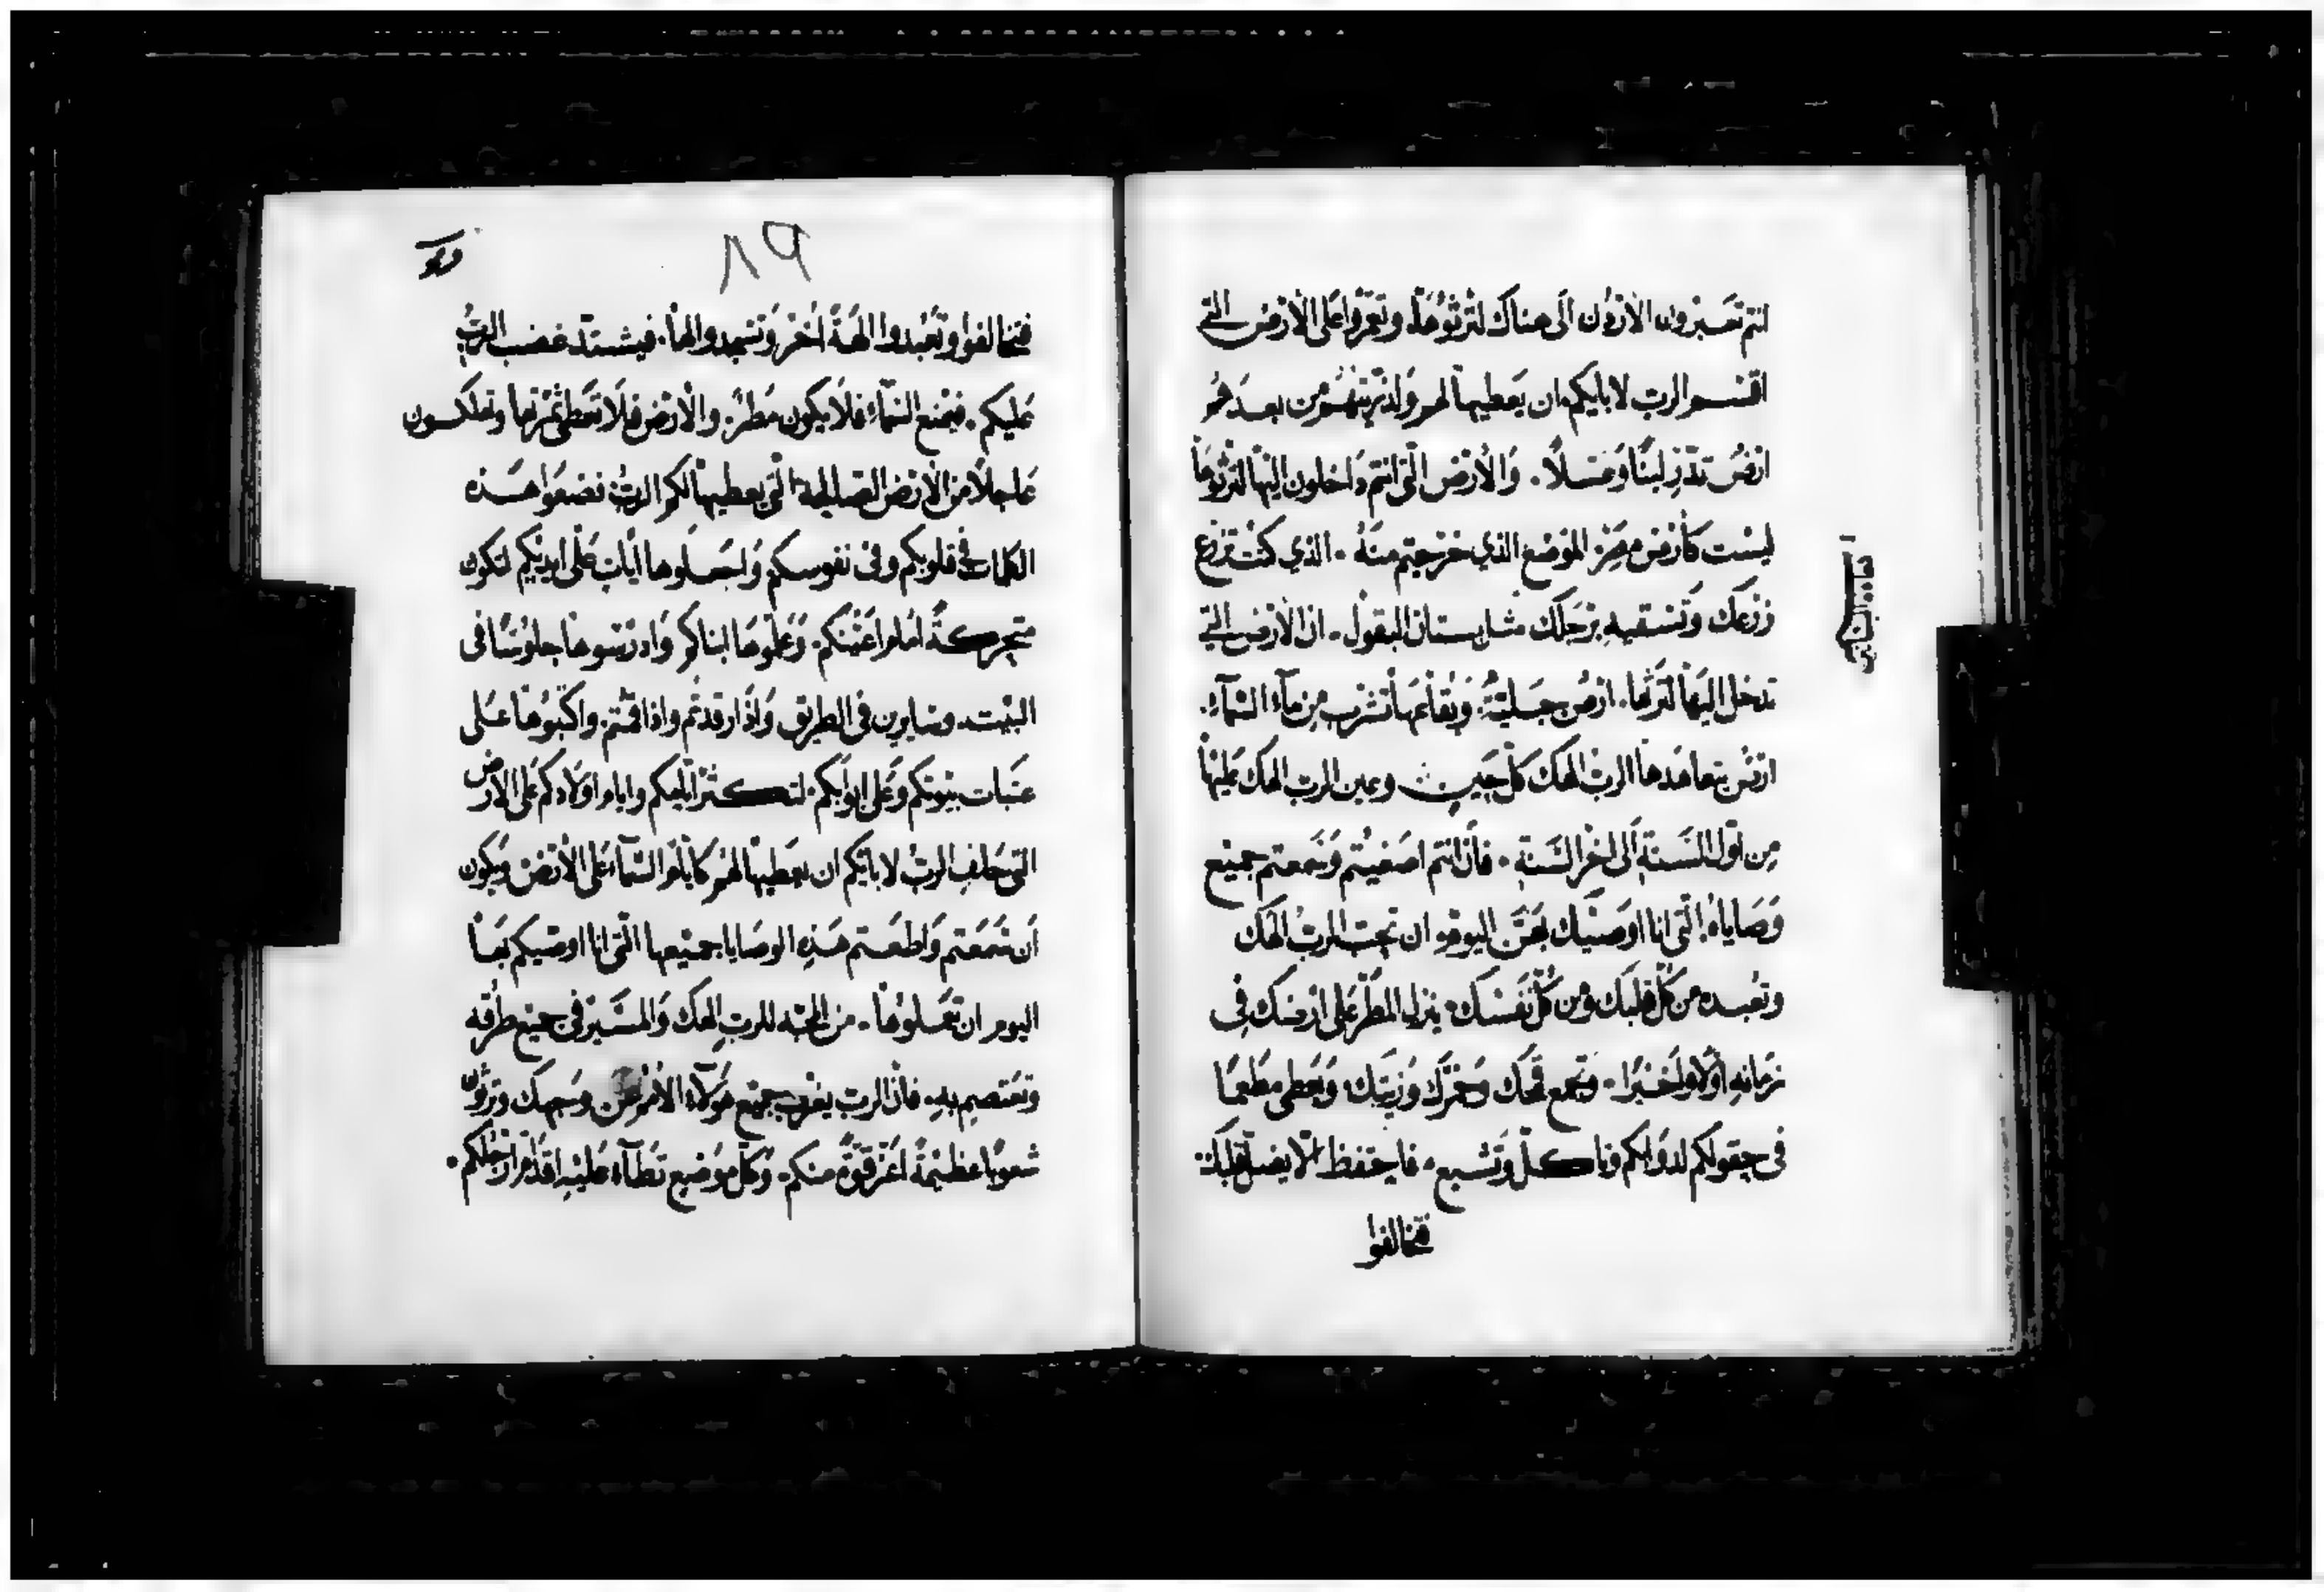 انتم تعبرون الأردن الى هناك لترثوها وتعمروا على الأرض التي
اقسم الرب لابايكم ان يعطيها لهم ولذريتهم من بعدهم
ارض تدر لبنًا وعسلًا. والأرض التى انتم داخلون اليها لترثوها
ليست كأرض مصر الموضع الذي خرجتم منه. الذي كنت تزرع
زرعك وتسقيه برجلك مثل بستان البقول. ان الارض التي
تدخل اليها لترثها. ارض جبلية وبقلتها تشرب من مآء السمآء.
ارض يتعاهدها الرب الهك كل حين وعين الرب الهك عليها
من اول السنة الى اخر السنة. فأن انتم اصغيتم وسمعتم جميع
وصاياه التى انا اوصيك بهن اليوم ان تحب الرب الهك
وتعبده من كل قلبك ومن كل نفسك. ينزل المطر على ارضك فى
زمانه اولًا واخيرًا. وتجمع قمحك وخمرك وزيتك. ويعطى مطعمًا
فى حقولكم لدوابكم وتاكل وتشبع. فاحتفظ لئلا يضل قلبك
فتخالفوا
٨٩
فتخالفوا وتعبدوا الهة اخر وتسجدوا لها. فيشتد غضب الرب
عليكم. فيمنع السمآء فلا يكون مطر. والأرض فلا تعطى ثمرتها وتهلكون
عاجلًا من الأرض الصالحة التى يعطيها لكم الرب. فضعوا هذه
الكلمات فى قلوبكم وفى نفوسكم واجعلوها ايات على ايديكم لتكون
متحركة امام اعينكم. وعلموها ابناكم وادرسوها جلوسًا فى
البيت. وسايرين فى الطريق واذا رقدتم واذا قمتم. واكتبوها على
عتبات بيوتكم وعلى ابوابكم. لتكثر ايامكم وايام اولادكم على الارض
التى حلف الرب لابايكم ان يعطيها لهم كايام السمآء على الأرض ويكون
ان سمعتم واطعتم هذه الوصايا جميعها التى انا اوصيكم بها
اليوم ان تعملوها. من المحبه للرب الهك والمسير فى جميع طرقه
وتعتصم به. فان الرب يغرب جميع هولآء الأمم من وجهك وترثون
شعوبًا عظيمة اعز قوة منكم. وكل موضع تطآه عليه اقدام ارجلكم.